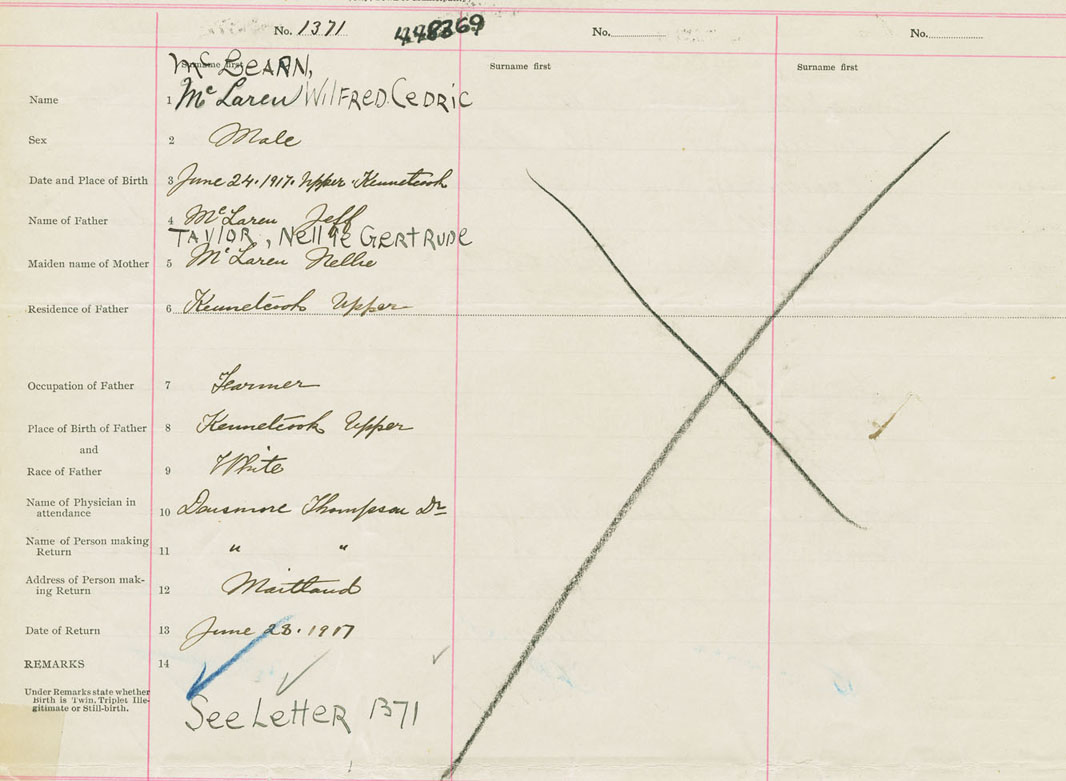 No. 1371 448369 No. No.
Surname first Surname first Surname first
McLEARN,
Name 1 McLaren WILFRED.CEDRIC
Sex 2 Male
Date and Place of Birth 3 June 24.1917. Upper Kennetcook
Name of Father 4 McLaren Jeff
TAYLOR, NELLIE GERTRUDE
Maiden name of Mother 5 McLaren Nellie
Residence of Father 6 Kennetcook Upper
Occupation of Father 7 Fearmer
Place of Birth of Father 8 Kennetcook Upper
and
Race of Father 9 White
Name of Physician in
attendance 10 Densmore Thompson Dr
Name of Person making
Return 11 " "
Address of Person mak-
ing Return 12 Maitland
Date of Return 13 June 28.1917
REMARKS 14
Under Remarks state whether
Birth is Twin, Triplet Ille-
gitimate or Still-birth.
See LETTER 1371